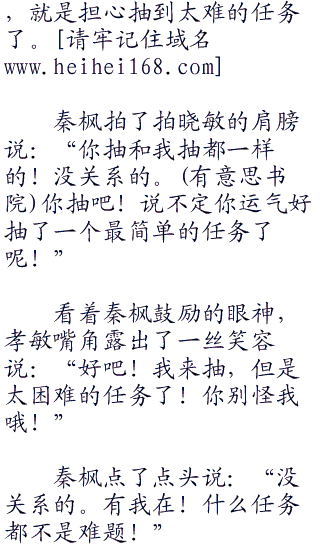 ，就是担心抽到太难的任务
了。[请牢记住域名
www.heihei168.com]
秦枫拍了拍晓敏的肩膀
说：“你抽和我抽都一样
的！没关系的。(有意思书
院)你抽吧！说不定你运气好
抽了一个最简单的任务了
呢！”
看着秦枫鼓励的眼神，
孝敏嘴角露出了一丝笑容
说：“好吧！我来抽，但是
太困难的任务了！你别怪我
哦！”
秦枫点了点头说：“没
关系的。有我在！什么任务
都不是难题！”